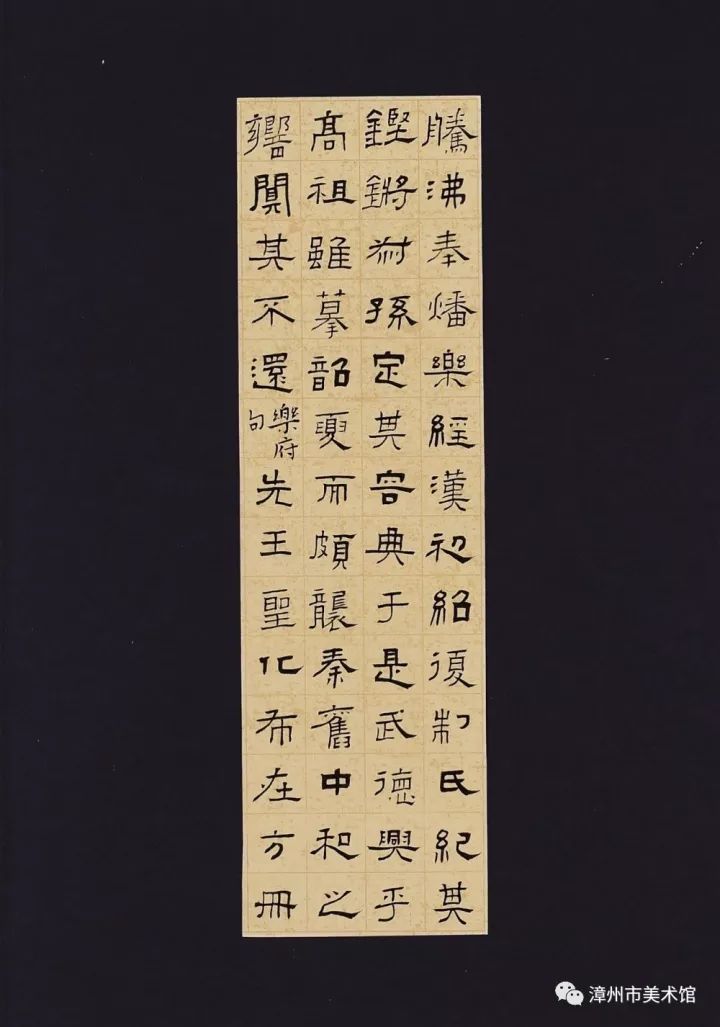 騰沸奉燔樂經漢初紹復制氏紀其
鏗鏘叔孫定其容典于是武德興乎
高祖雖摹韶夏而頗襲秦舊中和之
響闃其不還樂府句先王聖化布在方冊
漳州市美术馆